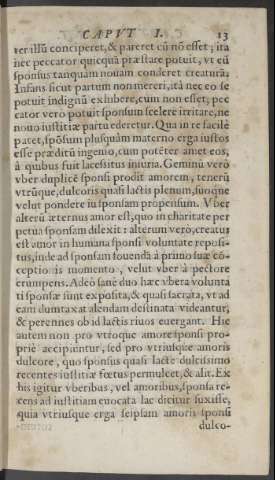 CAPVT I. 13
ter illũ conciperet, & pareret cũ nō esset; ita
nec peccator quicquã præstare potuit, vt eũ
sponsus tanquam nouam conderet creaturā.
Infans sicut partum non mereri, ita nec eo se
potuit indignũ exhibere, cum non esset; pec
cator vero potuit sponsum scelere irritare, ne
nouo iustitiæ partu ederetur. Qua in re facilè
patet, spōsum plusquàm materno erga iustos
esse præditũ ingenio, cum potēter amet eos,
à quibus fuit lacessitus iniuria. Geminũ verò
vber duplicē sponsi prodit amorem, tenerũ
vtrũque, dulcoris quasi lactis plenum, suoque
velut pondere in sponsam propensum. Vber
alterũ æternus amor est, quo in charitate per
petua sponsam dilexit: alterum verò, creatus
est amor in humana sponsi voluntate reposi-
tus, inde ad sponsam fouendā à primo suæ cō-
ceptionis momento, velut vber à pectore
erumpens. Adeò sanè duo hæc vbera volunta
ti sponsæ sunt exposita, & quasi sacrata, vt ad
eam dumtaxat alendam destinata videantur,
& perennes ob id lactis riuos euergant. Hic
autem non pro vtroque amore sponsi pro-
priè accipiuntur, sed pro vtriusque amoris
dulcore, quo sponsus quasi lacte dulcissimo
recentes iustitiæ fœtus permulcet, & alit. Ex
his igitur vberibus, vel amoribus, sponsa re-
cens ad iustitiam euocata lac dicitur suxisse,
quia vtriusque erga seipsam amoris sponsi
dulco-